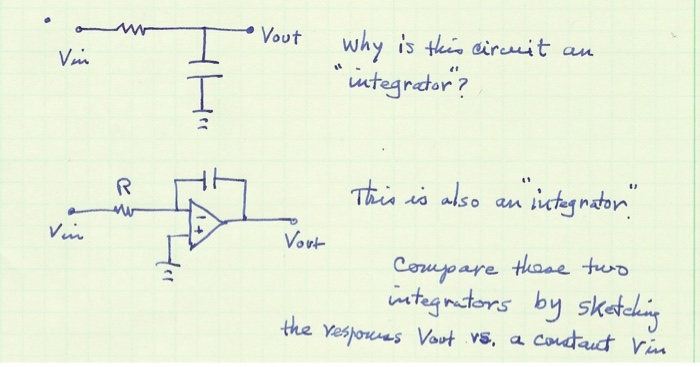 Vin
Vout
Why is this circuit an
"integrator"?
R
-
+
Vin
Vout
This is also an "integrator"
Compare these two
integrators by sketching
the responses Vout vs. a constant Vin